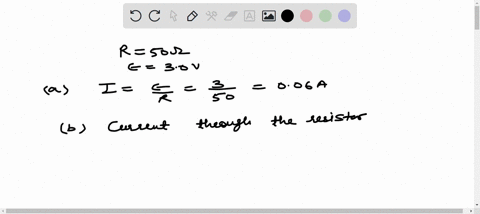 R = 50Ω
ε = 3.0 V
(a) I = ε/R = 3/50 = 0.06 A
(b) Current through the resistor